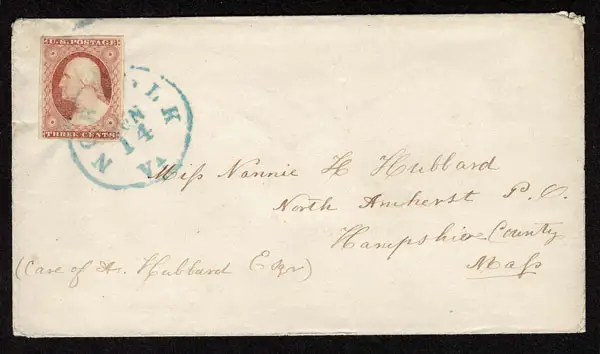 U.S. POSTAGE
THREE CENTS
NORFOLK
JUN
14
Va
Miſs Nannie H Hubbard
North Amherst P. O.
Hampshire County
Maſs
(Care of A. Hubbard Esqr)